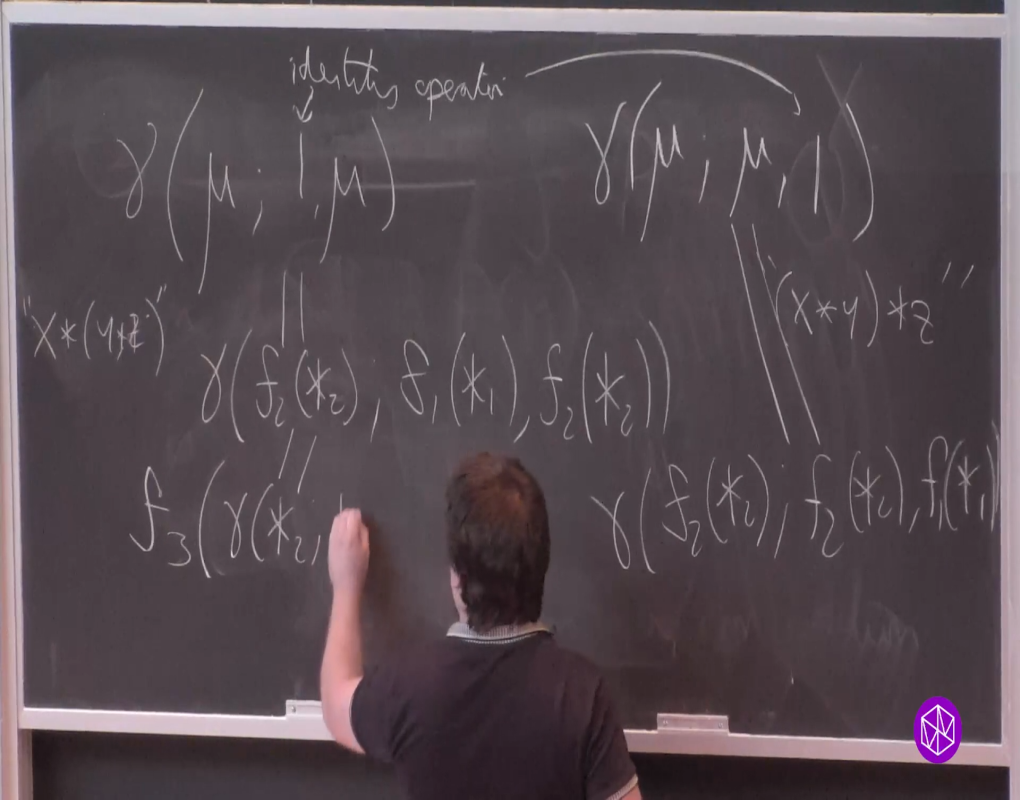 identity operation
γ(μ; 1, μ)
γ(μ; μ, 1)
"X*(y*z)"
"(X*y)*z"
γ(f₂(*₂); f₁(*₁), f₂(*₂))
f₃(γ(*₂;
γ(f₂(*₂); f₂(*₂), f₁(*₁)